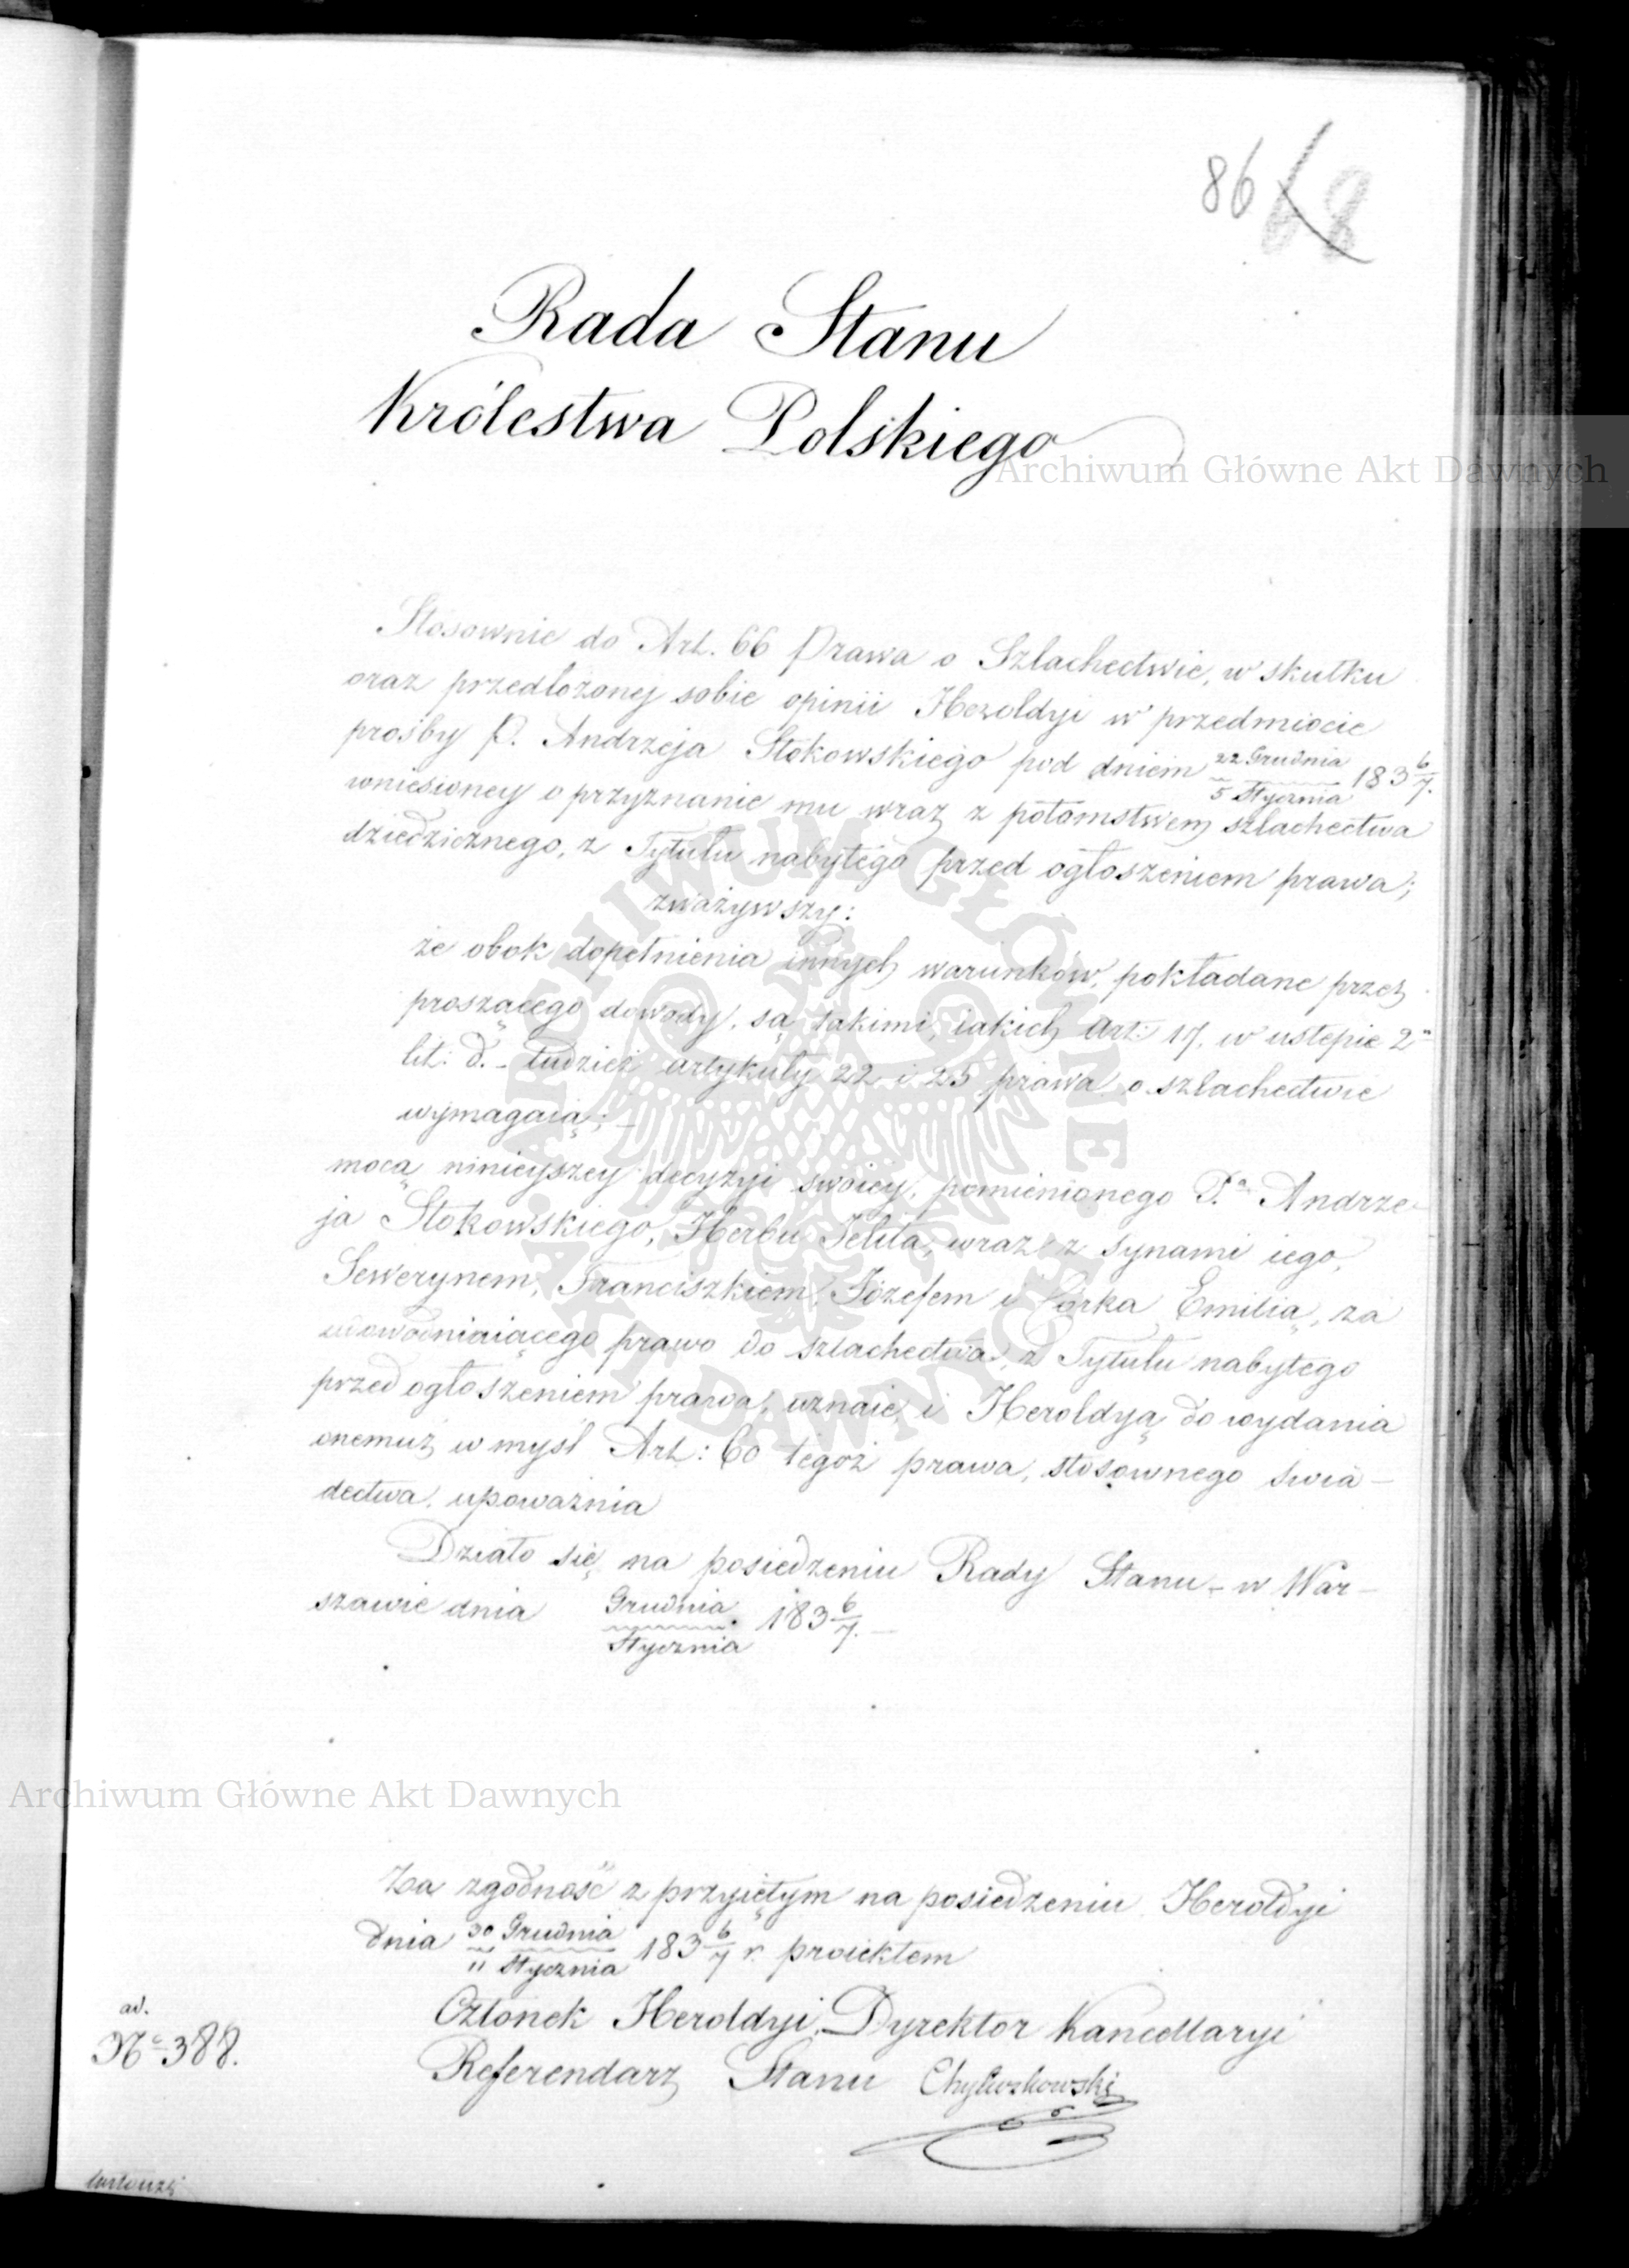 86 68
Rada Stanu
Królestwa Polskiego
Archiwum Główne Akt Dawnych
Stosownie do Art. 66 Prawa o Szlachectwie, w skutku
oraz przedłożoney sobie opinii Heroldyi w przedmiocie
prośby P. Andrzeja Stokowskiego pod dniem 22 Grudnia / 5 Stycznia 183 6/7.
wniesioney o przyznanie mu wraz z potomstwem szlachectwa
dziedzicznego, z Tytułu nabytego przed ogłoszeniem prawa;
zważywszy:
że obok dopełnienia innych warunków, pokładane przez
proszącego dowody, są takimi, iakich Art: 17, w ustępie 2m
lit: d. - tudzież artykuły 22 i 25 prawa o szlachectwie
wymagaią; -
mocą ninieyszey decyzyi swoiey, pomienionego P.a Andrze-
ja Stokowskiego, Herbu Jelita, wraz z synami iego,
Sewerynem, Franciszkiem, Józefem i Córką Emilią, za
udowodniaiącego prawo do szlachectwa, z Tytułu nabytego
przed ogłoszeniem prawa, uznaie, i Heroldyą do wydania
onemuż w myśl Art: 60 tegoż prawa, stosownego świa-
dectwa, upoważnia
Działo się na posiedzeniu Rady Stanu - w War-
szawie dnia Grudnia / Stycznia 183 6/7. -
ARCHIWUM GŁÓWNE · AKT DAWNYCH ·
Archiwum Główne Akt Dawnych
Za zgodność z przyiętym na posiedzeniu Heroldyi
dnia 30 Grudnia / 11 Stycznia 183 6/7 r. proiektem
Członek Heroldyi, Dyrektor Kancellaryi
Referendarz Stanu Chyliczkowski
ad.
No 388.